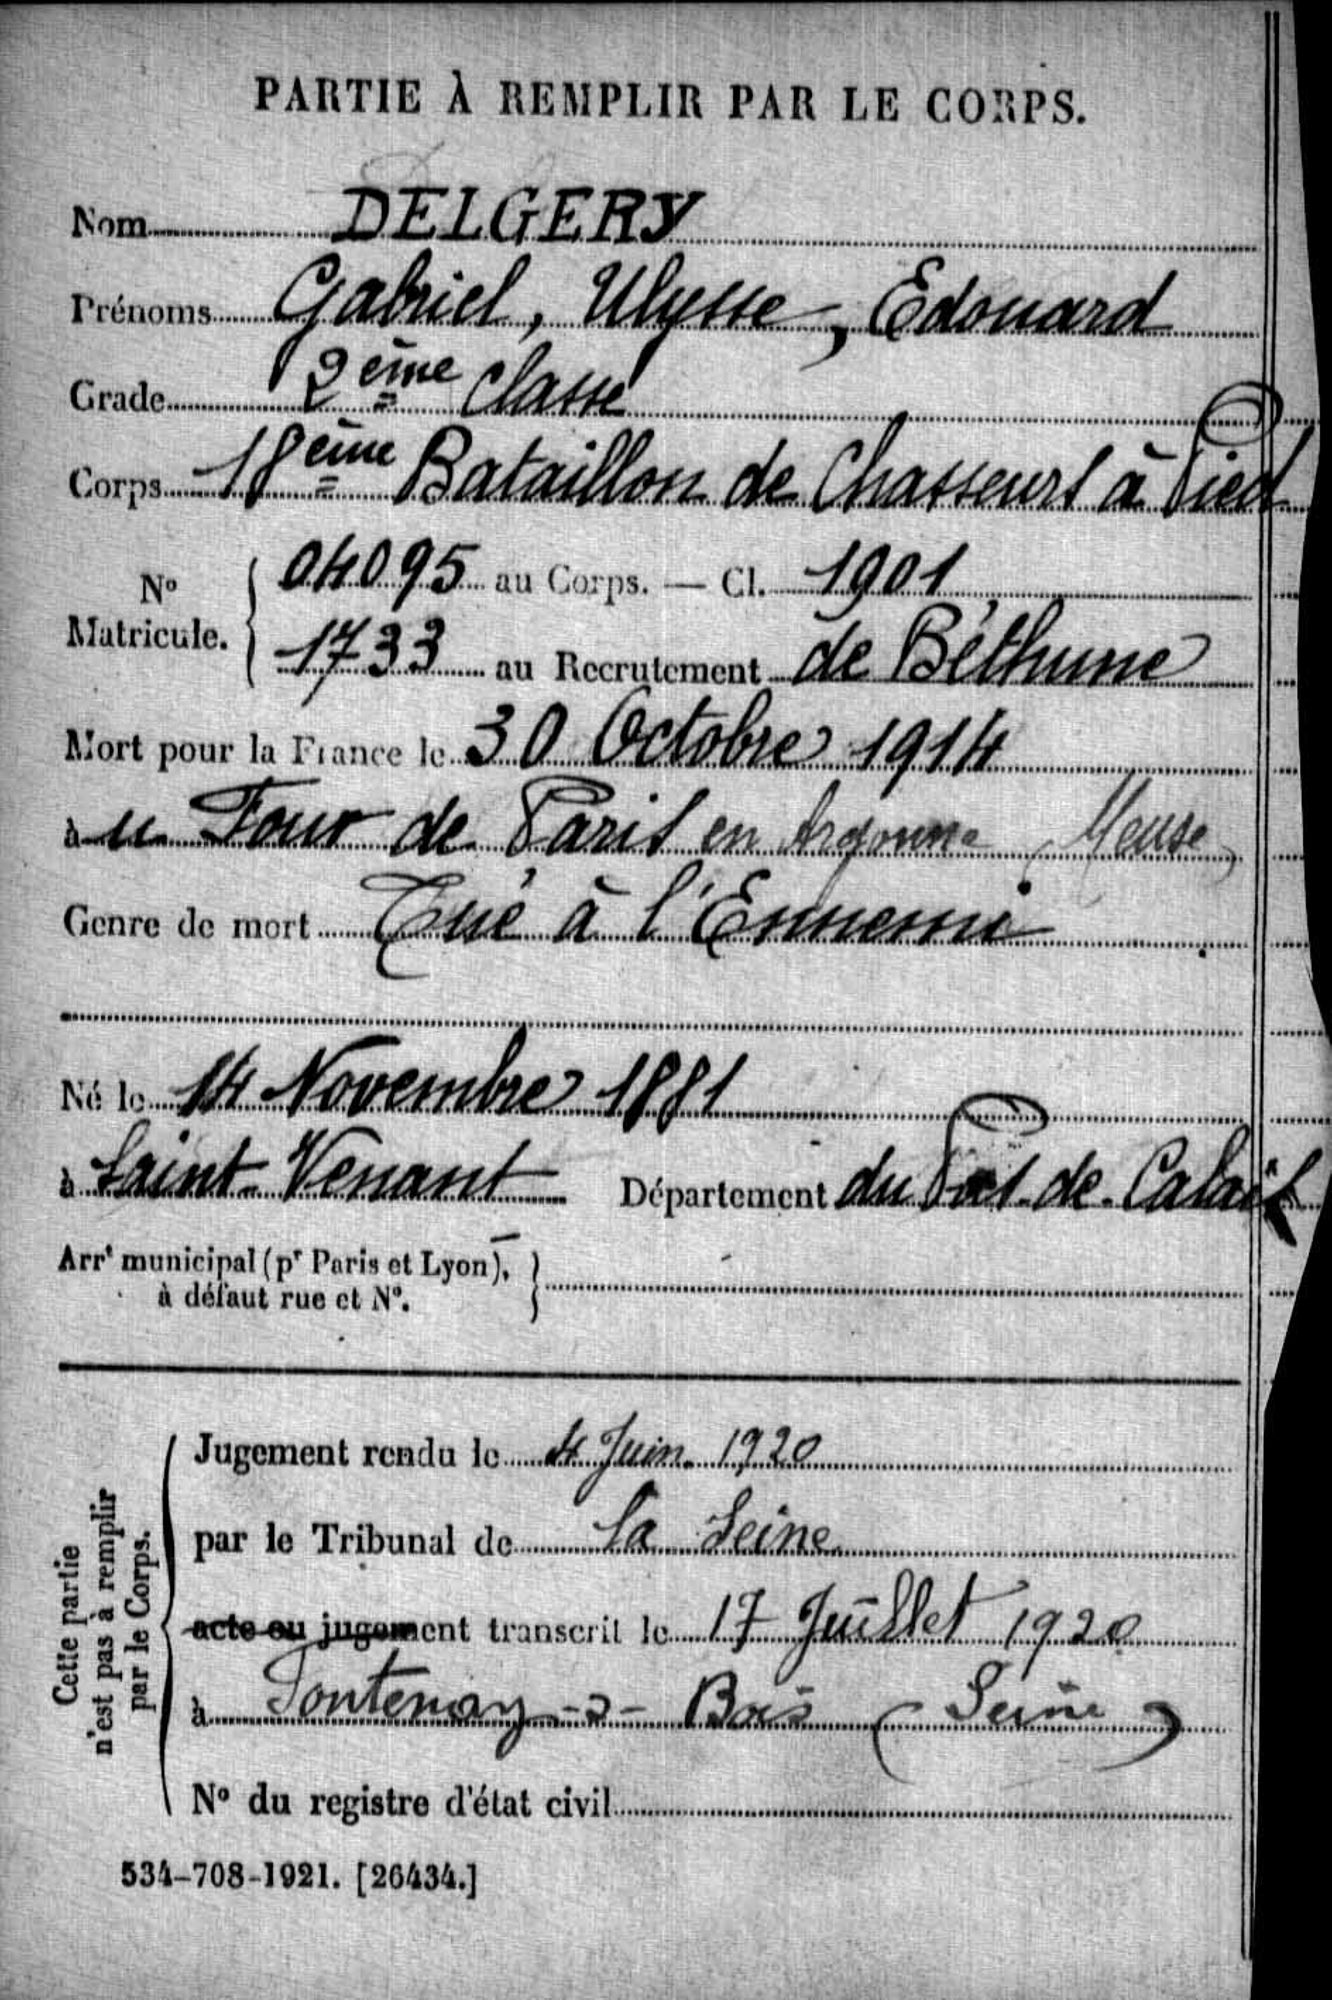 PARTIE À REMPLIR PAR LE CORPS.
Nom DELGERY
Prénoms Gabriel, Ulysse, Edouard
Grade 2ème Classe
Corps 18ème Bataillon de Chasseurs à Pied
Nº Matricule. { 04095 au Corps. — Cl. 1901
1733 au Recrutement de Béthune
Mort pour la France le 30 Octobre 1914
à u Four de Paris en Argonne (Meuse)
Genre de mort Tué à l'Ennemi
Né le 14 Novembre 1881
à Saint-Venant Département du Pas-de-Calais
Arrt municipal (pr Paris et Lyon), }
à défaut rue et Nº.
Cette partie
n'est pas à remplir
par le Corps.
Jugement rendu le 4 Juin 1920
par le Tribunal de la Seine
acte ou jugement transcrit le 17 Juillet 1920
à Fontenay-s-Bois (Seine)
Nº du registre d'état civil
534-708-1921. [26434.]